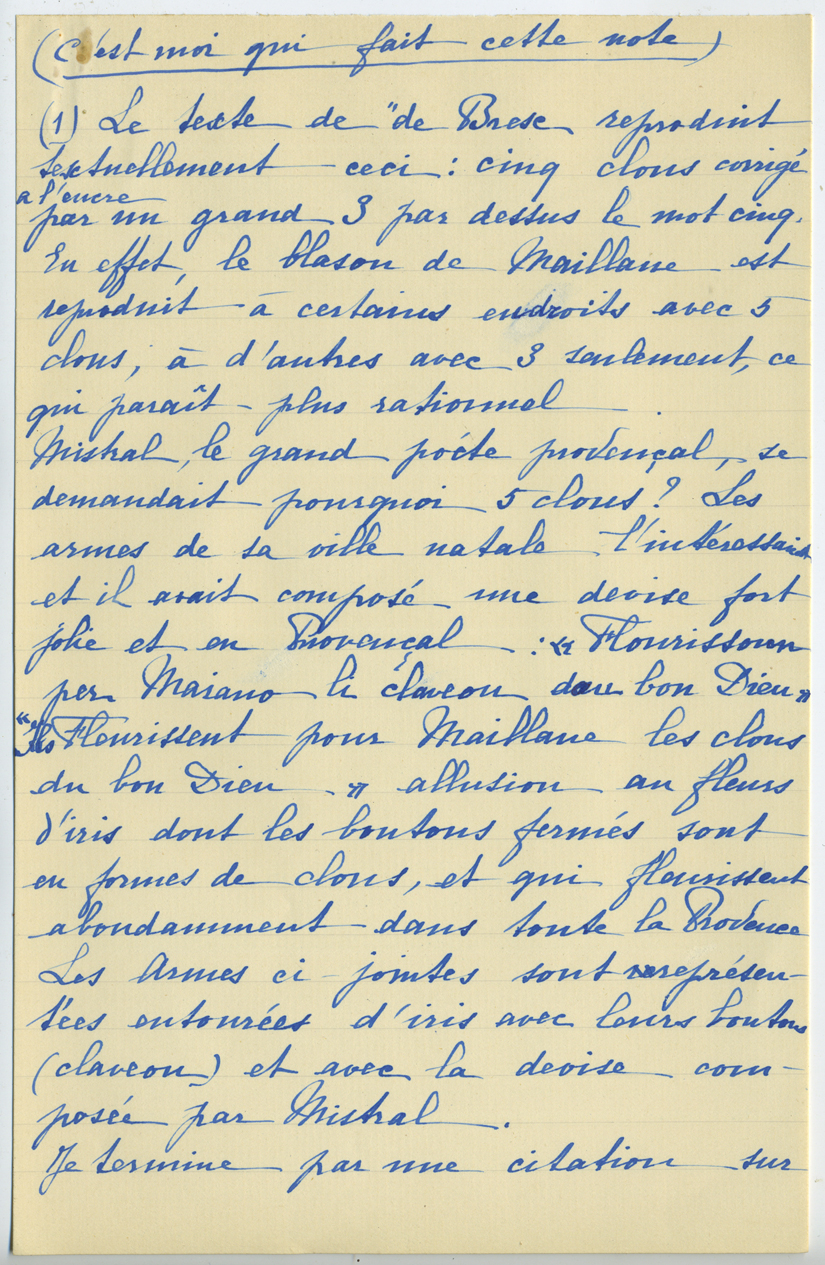 (c'est moi qui fait cette note)
(1) Le texte de "de Bresc reproduit
textuellement ceci : cinq clous corrigé
a l'encre
par un grand 3 par dessus le mot cinq.
En effet, le blason de Maillane est
reproduit à certains endroits avec 5
clous, à d'autres avec 3 seulement, ce
qui paraît plus rationnel.
Mistral, le grand poète provençal, se
demandait pourquoi 5 clous ? Les
armes de sa ville natale l'intéressait
et il avait composé une devise fort
jolie et en Provençal : « Flourissoun
per Maiano li claveou dou bon Dieu »
"Ils Fleurissent pour Maillane les clous
du bon Dieu » allusion au fleurs
d'iris dont les boutons fermés sont
en formes de clous, et qui fleurissent
abondamment dans toute la Provence
Les Armes ci-jointes sont représen-
tées entourées d'iris avec leurs boutons
(claveou) et avec la devise com-
posée par Mistral.
Je termine par une citation sur